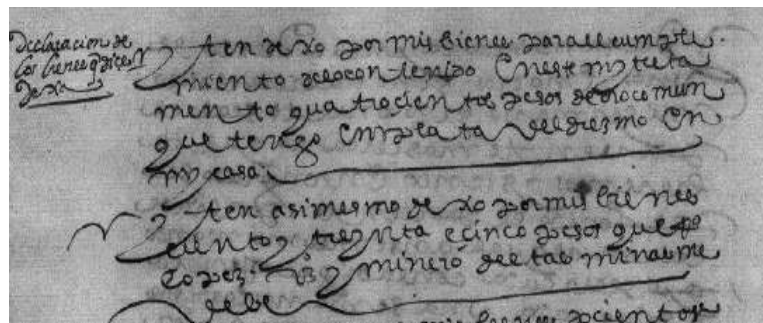 declaracion de
los bienes q dizen
dexa
Yten dexo por mis bienes para el cumpli
miento de lo contenido En este my testa
mento quatrocientos pesos de oro comun
que tengo En plata del diezmo En
my casa
Yten asimesmo dexo por mis bienes
ciento y treynta e cinco pesos que
lopez minero de las minas me
debe
bienes